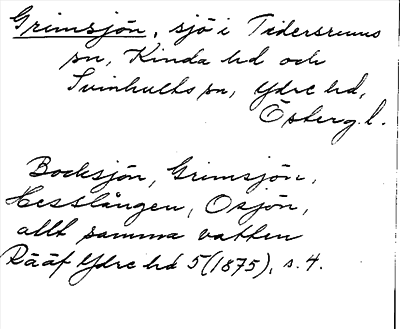 Grimsjön, sjö i Tidersrums
sn, Kinda hd och
Svinhults sn, Ydre hd,
Österg. l.
Bocksjön, Grimsjön,
Hesslången, Osjön,
allt samma vatten
Rääf Ydre hd 5 (1875), s. 4.